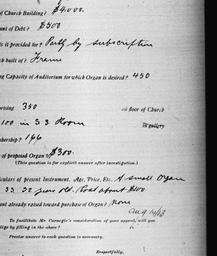 of Church Building? $4,000.
ount of Debt? $500
is it provided for? Partly by subscription
ch built of? Frame
ng Capacity of Auditorium for which Organ is desired? 450
prising 350 on floor of Church
100 in S S Room in gallery
bership? 146
of proposed Organ? $300.
(This question is for explicit answer after investigation.)
iculars of present Instrument, Age, Price, Etc. A small Organ
years old. Cost about $100
unt already raised toward purchase of Organ? none
To facilitate Mr. Carnegie's consideration of your appeal, will you
lige by filling in the above?
Precise answer to each question is necessary.
Respectfully,